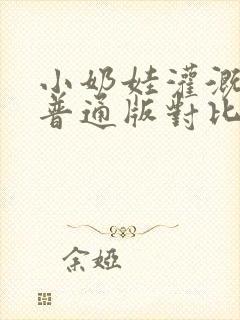 小奶娃灌溉
普通版對比
余婭